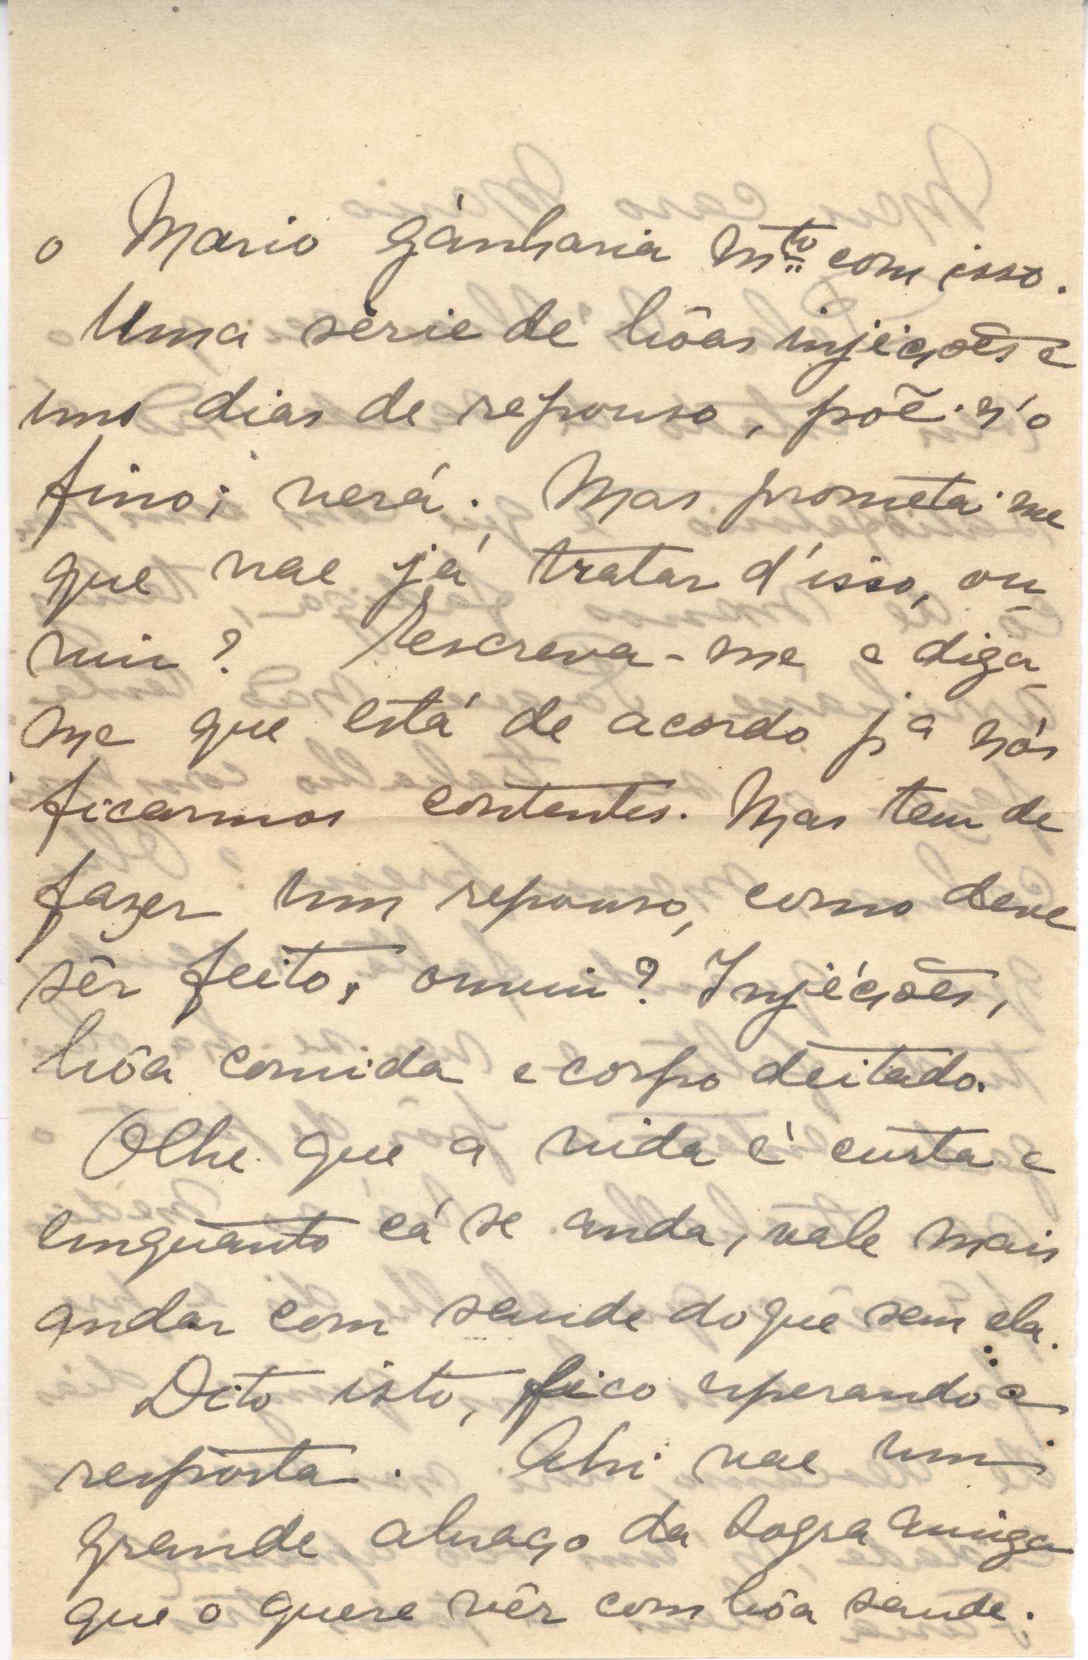 o Mario gánharia mto com isso.
Uma série de bôas injéçoẽs e
uns dias de repouso, põe-n'o
fino; verá. Mas prometa-me
que vae já tratar d'isso, ou-
viu? Escreva-me e diga-
me que está de acordo pa nós
ficarmos contentes. Mas tem de
fazer um repouso, como deve
sêr feito, ouviu? Injéções,
bôa comida e corpo deitado.
Olhe que a vida é curta e
emquanto cá se anda, vale mais
andar com saude do que sem ela.
Dito isto, fico esperando a
resposta. Ahi vae um
grande abraço da sogra amiga
que o quere vêr com bôa saude.